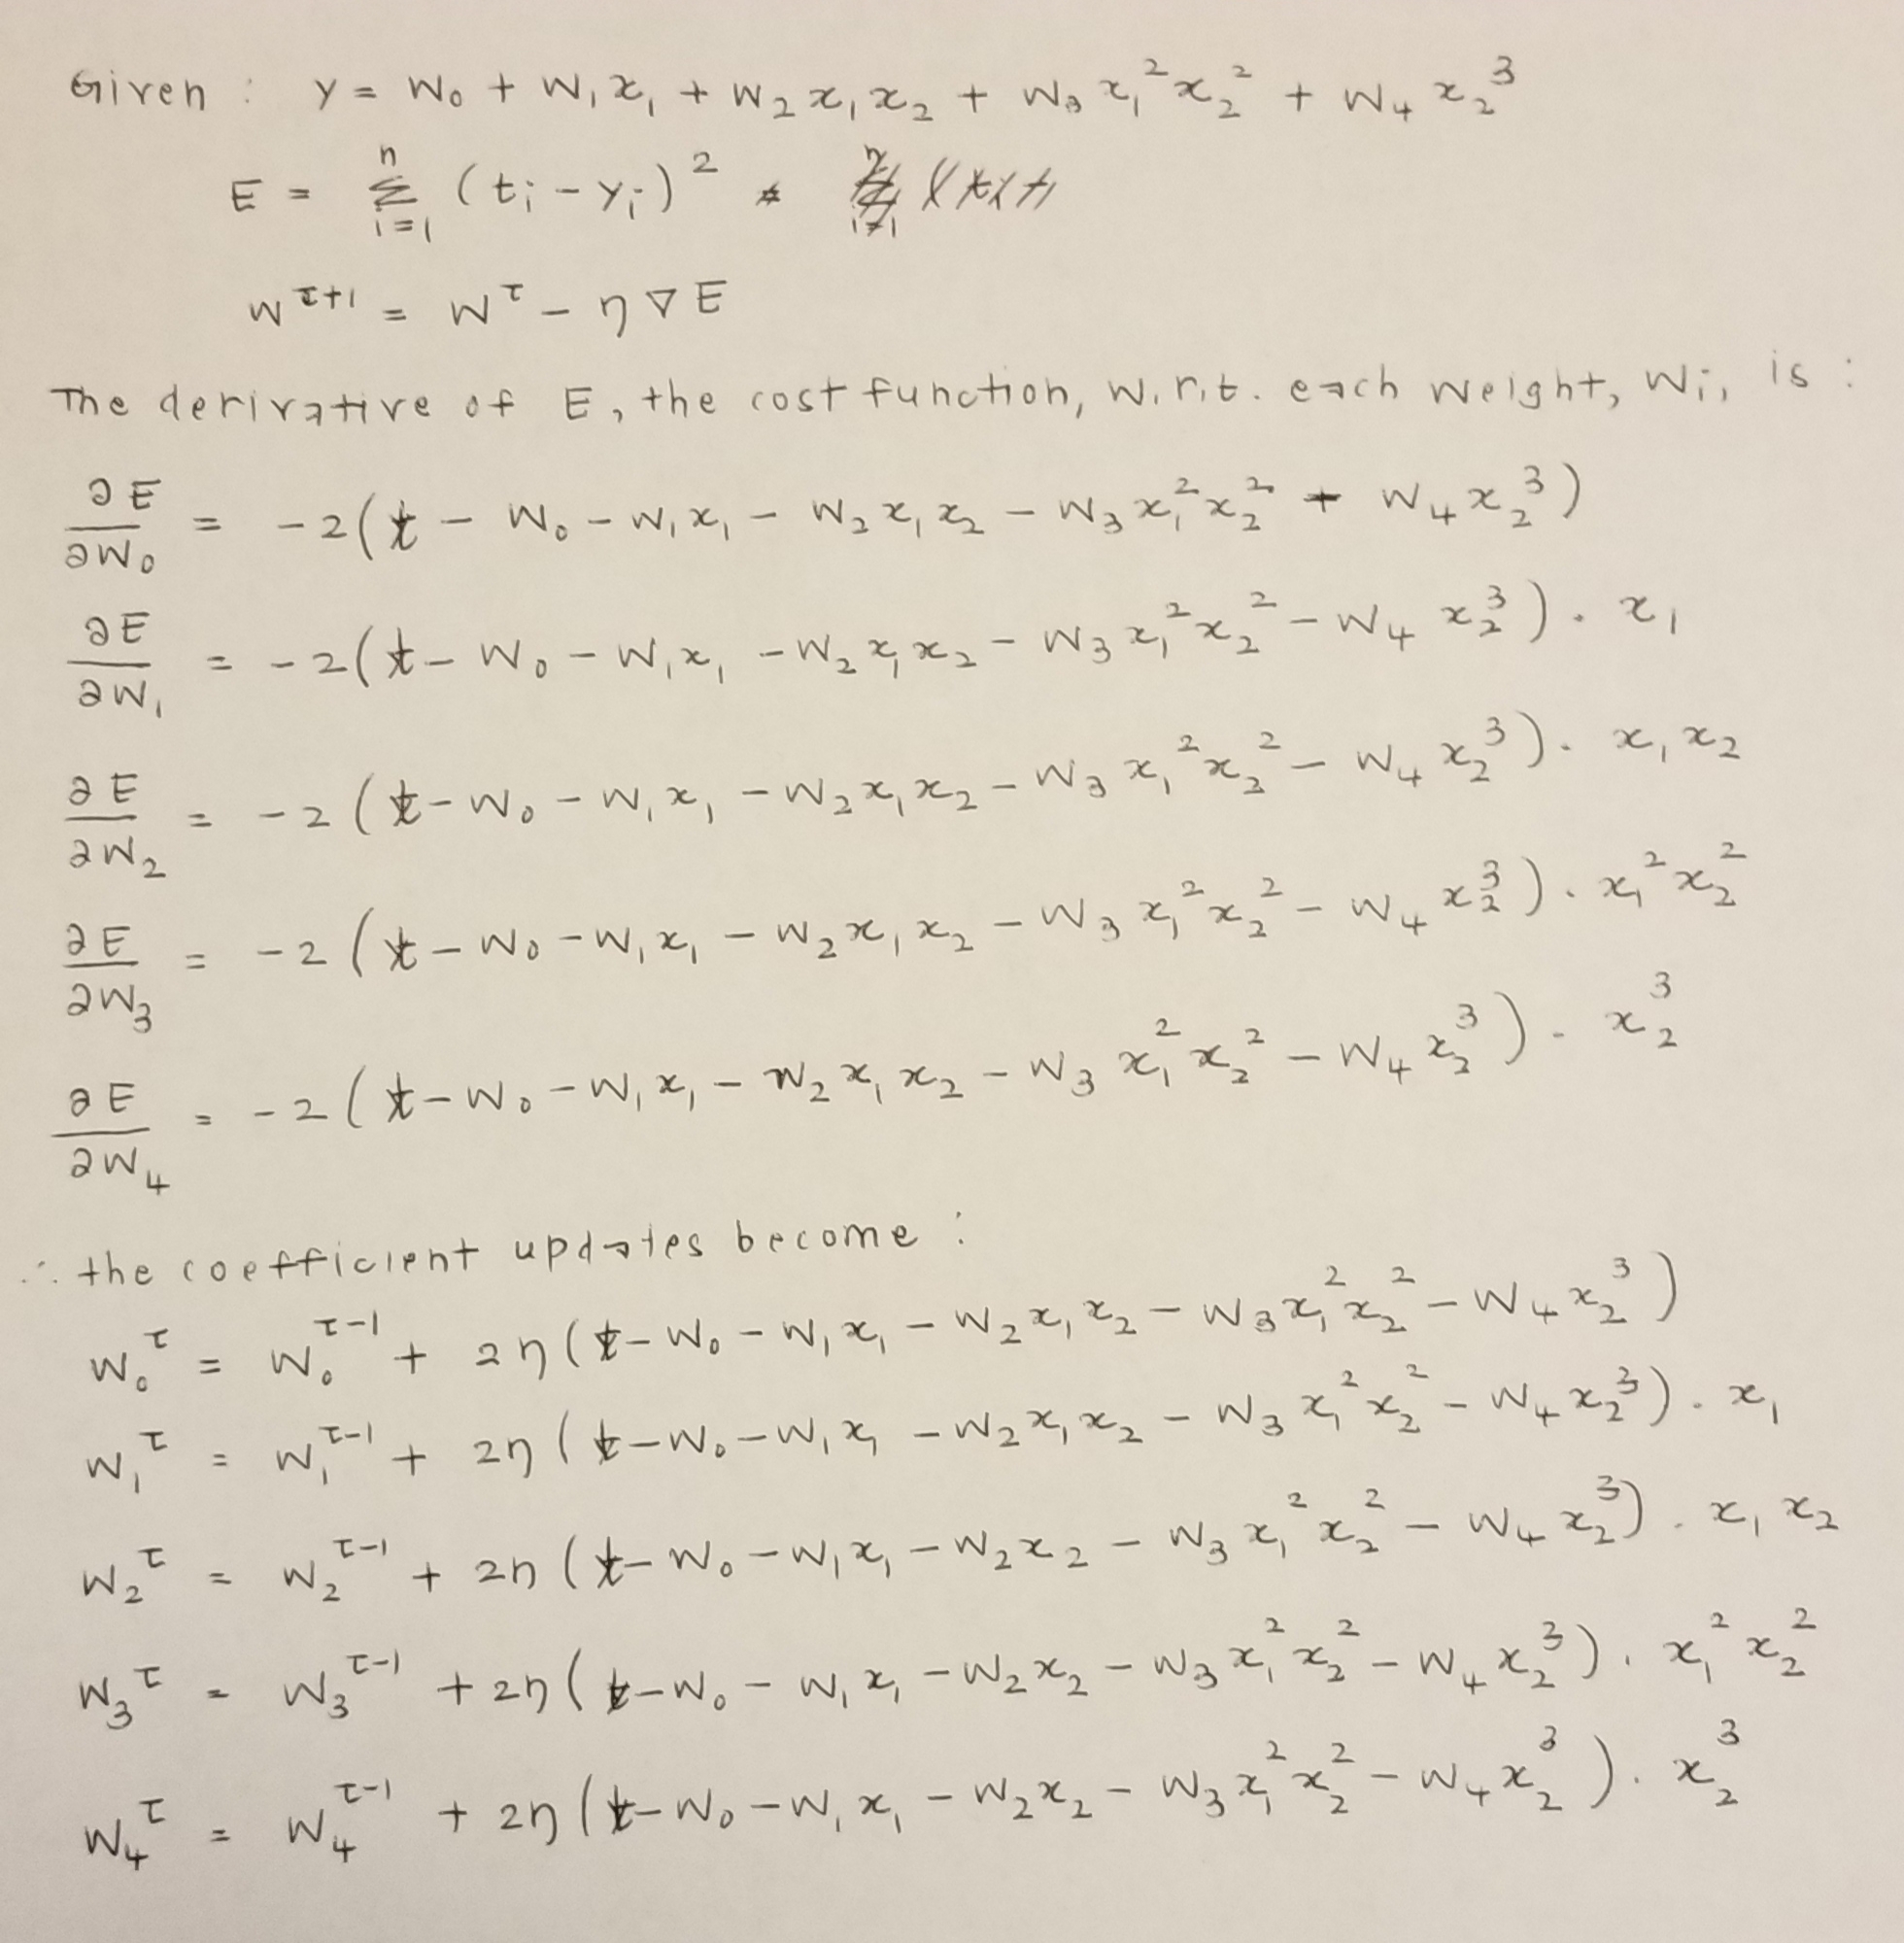 Given : y = w₀ + w₁x₁ + w₂x₁x₂ + w₃x₁²x₂² + w₄x₂³
E = Σᵢ₌₁ⁿ (tᵢ - yᵢ)²
w^(τ+1) = w^τ - η∇E
The derivative of E, the cost function, w.r.t. each weight, wᵢ, is :
∂E/∂w₀ = -2(t - w₀ - w₁x₁ - w₂x₁x₂ - w₃x₁²x₂² + w₄x₂³)
∂E/∂w₁ = -2(t - w₀ - w₁x₁ - w₂x₁x₂ - w₃x₁²x₂² - w₄x₂³) · x₁
∂E/∂w₂ = -2(t - w₀ - w₁x₁ - w₂x₁x₂ - w₃x₁²x₂² - w₄x₂³) · x₁x₂
∂E/∂w₃ = -2(t - w₀ - w₁x₁ - w₂x₁x₂ - w₃x₁²x₂² - w₄x₂³) · x₁²x₂²
∂E/∂w₄ = -2(t - w₀ - w₁x₁ - w₂x₁x₂ - w₃x₁²x₂² - w₄x₂³) · x₂³
∴ the coefficient updates become :
w₀^τ = w₀^(τ-1) + 2η(t - w₀ - w₁x₁ - w₂x₁x₂ - w₃x₁²x₂² - w₄x₂³)
w₁^τ = w₁^(τ-1) + 2η(t - w₀ - w₁x₁ - w₂x₁x₂ - w₃x₁²x₂² - w₄x₂³) · x₁
w₂^τ = w₂^(τ-1) + 2η(t - w₀ - w₁x₁ - w₂x₂ - w₃x₁²x₂² - w₄x₂³) · x₁x₂
w₃^τ = w₃^(τ-1) + 2η(t - w₀ - w₁x₁ - w₂x₂ - w₃x₁²x₂² - w₄x₂³) · x₁²x₂²
w₄^τ = w₄^(τ-1) + 2η(t - w₀ - w₁x₁ - w₂x₂ - w₃x₁²x₂² - w₄x₂³) · x₂³